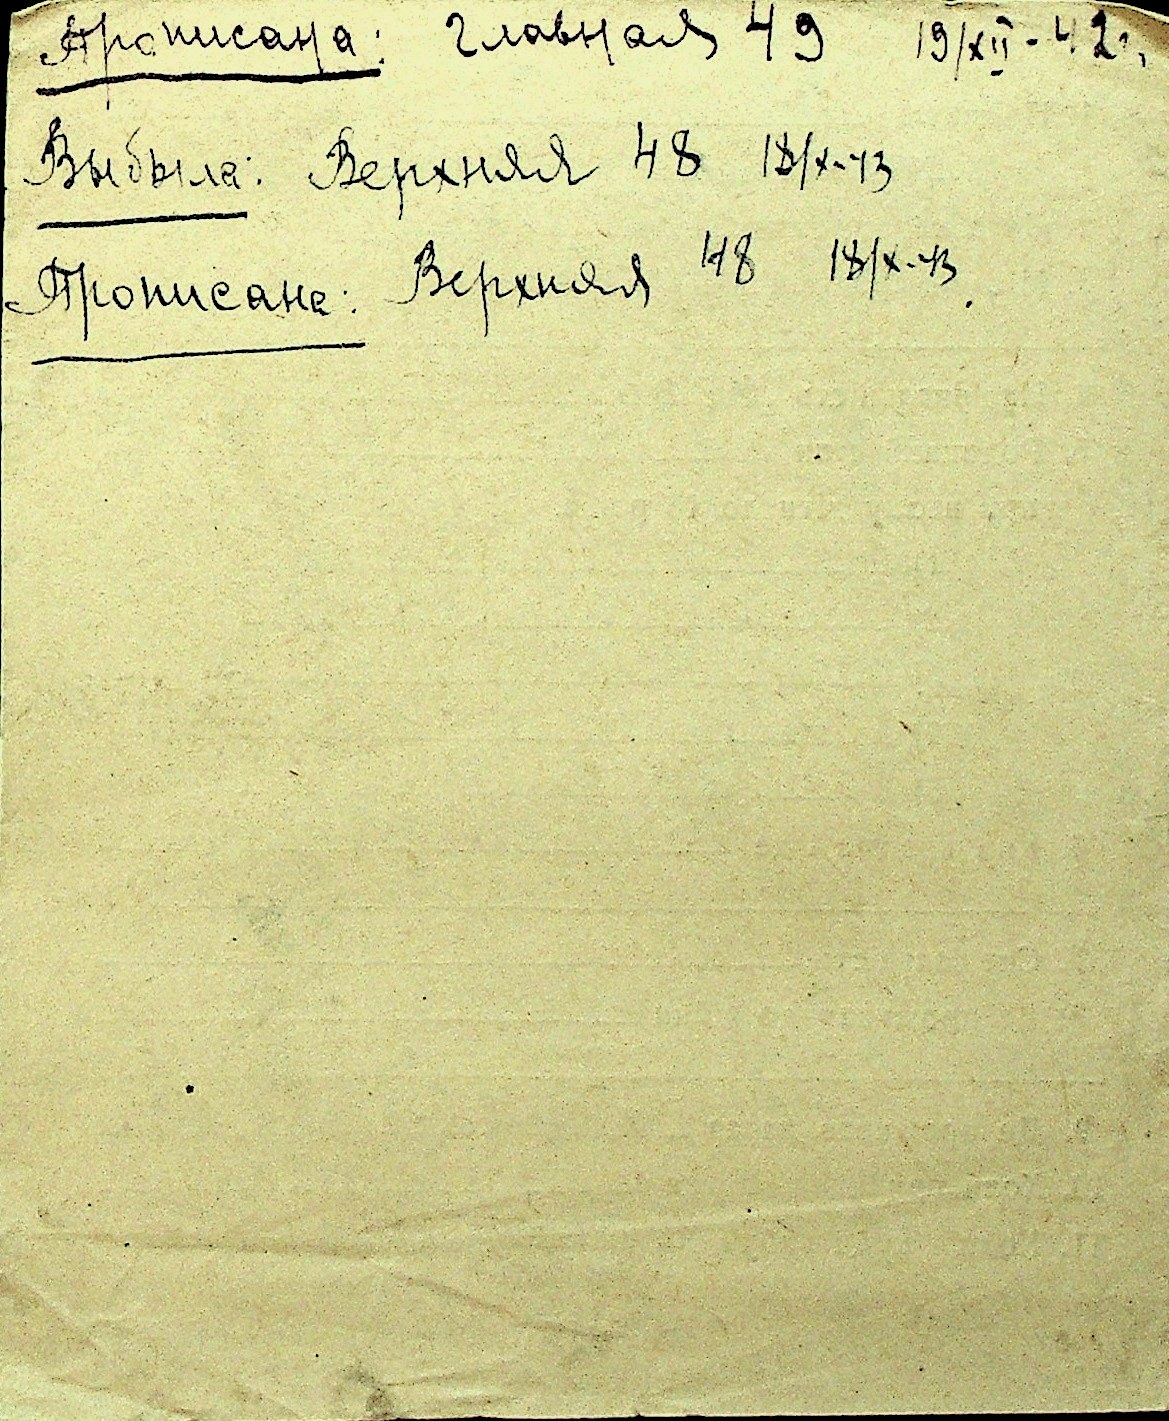 Прописана: Главная 49 19/XII-42г.
Выбыла: Верхняя 48 18/X-43
Прописана: Верхняя 48 18/X-43.